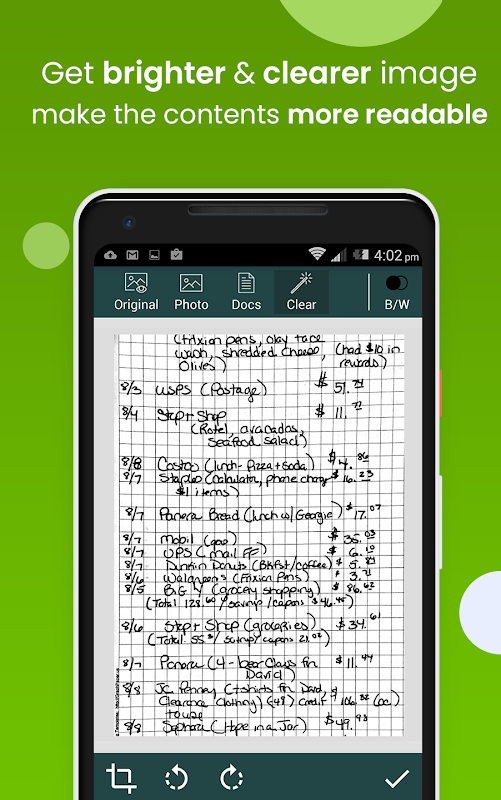 Get brighter & clearer image
make the contents more readable
4:02 pm
Original Photo Docs Clear B/W
(Frixion pens, olay face
wash, shredded cheese, (had $10 in
Olives) rewards)
8/3 USPS (Postage) $ 51.74
8/4 Stop + Shop $ 11.77
(Rotel, avacados,
Seafood Salad)
8/8 Costco (lunch- Pizza + Soda) $ 4.86
8/7 Staples (Calculator, phone charg $ 16.23
$1 items)
8/7 Panera Bread (lunch w/ Georgie) $ 17.07
8/7 Mobil (gas) $ 35.03
8/7 UPS (mail FF) $ 6.10
8/7 Dunkin Donuts (Bkfst/coffee) $ 5.89
8/6 Walgreens (Frixion Pens) $ 3.71
8/5 BIG Y (grocery shopping) $ 86.62
(Total 128.60 / savings / coupons $46.45)
8/6 Stop + Shop (groceries) $ 34.61
(Total 55 / savings / coupons 21.02)
8/7 Panera (4 - bear Claws for $ 11.44
David)
8/8 JC Penney (tshirts for David,
Clearance Clothing) (-48) credit $ 106.32 (cc)
8/8 Sephora (Hope in a Jar) $ 49.93